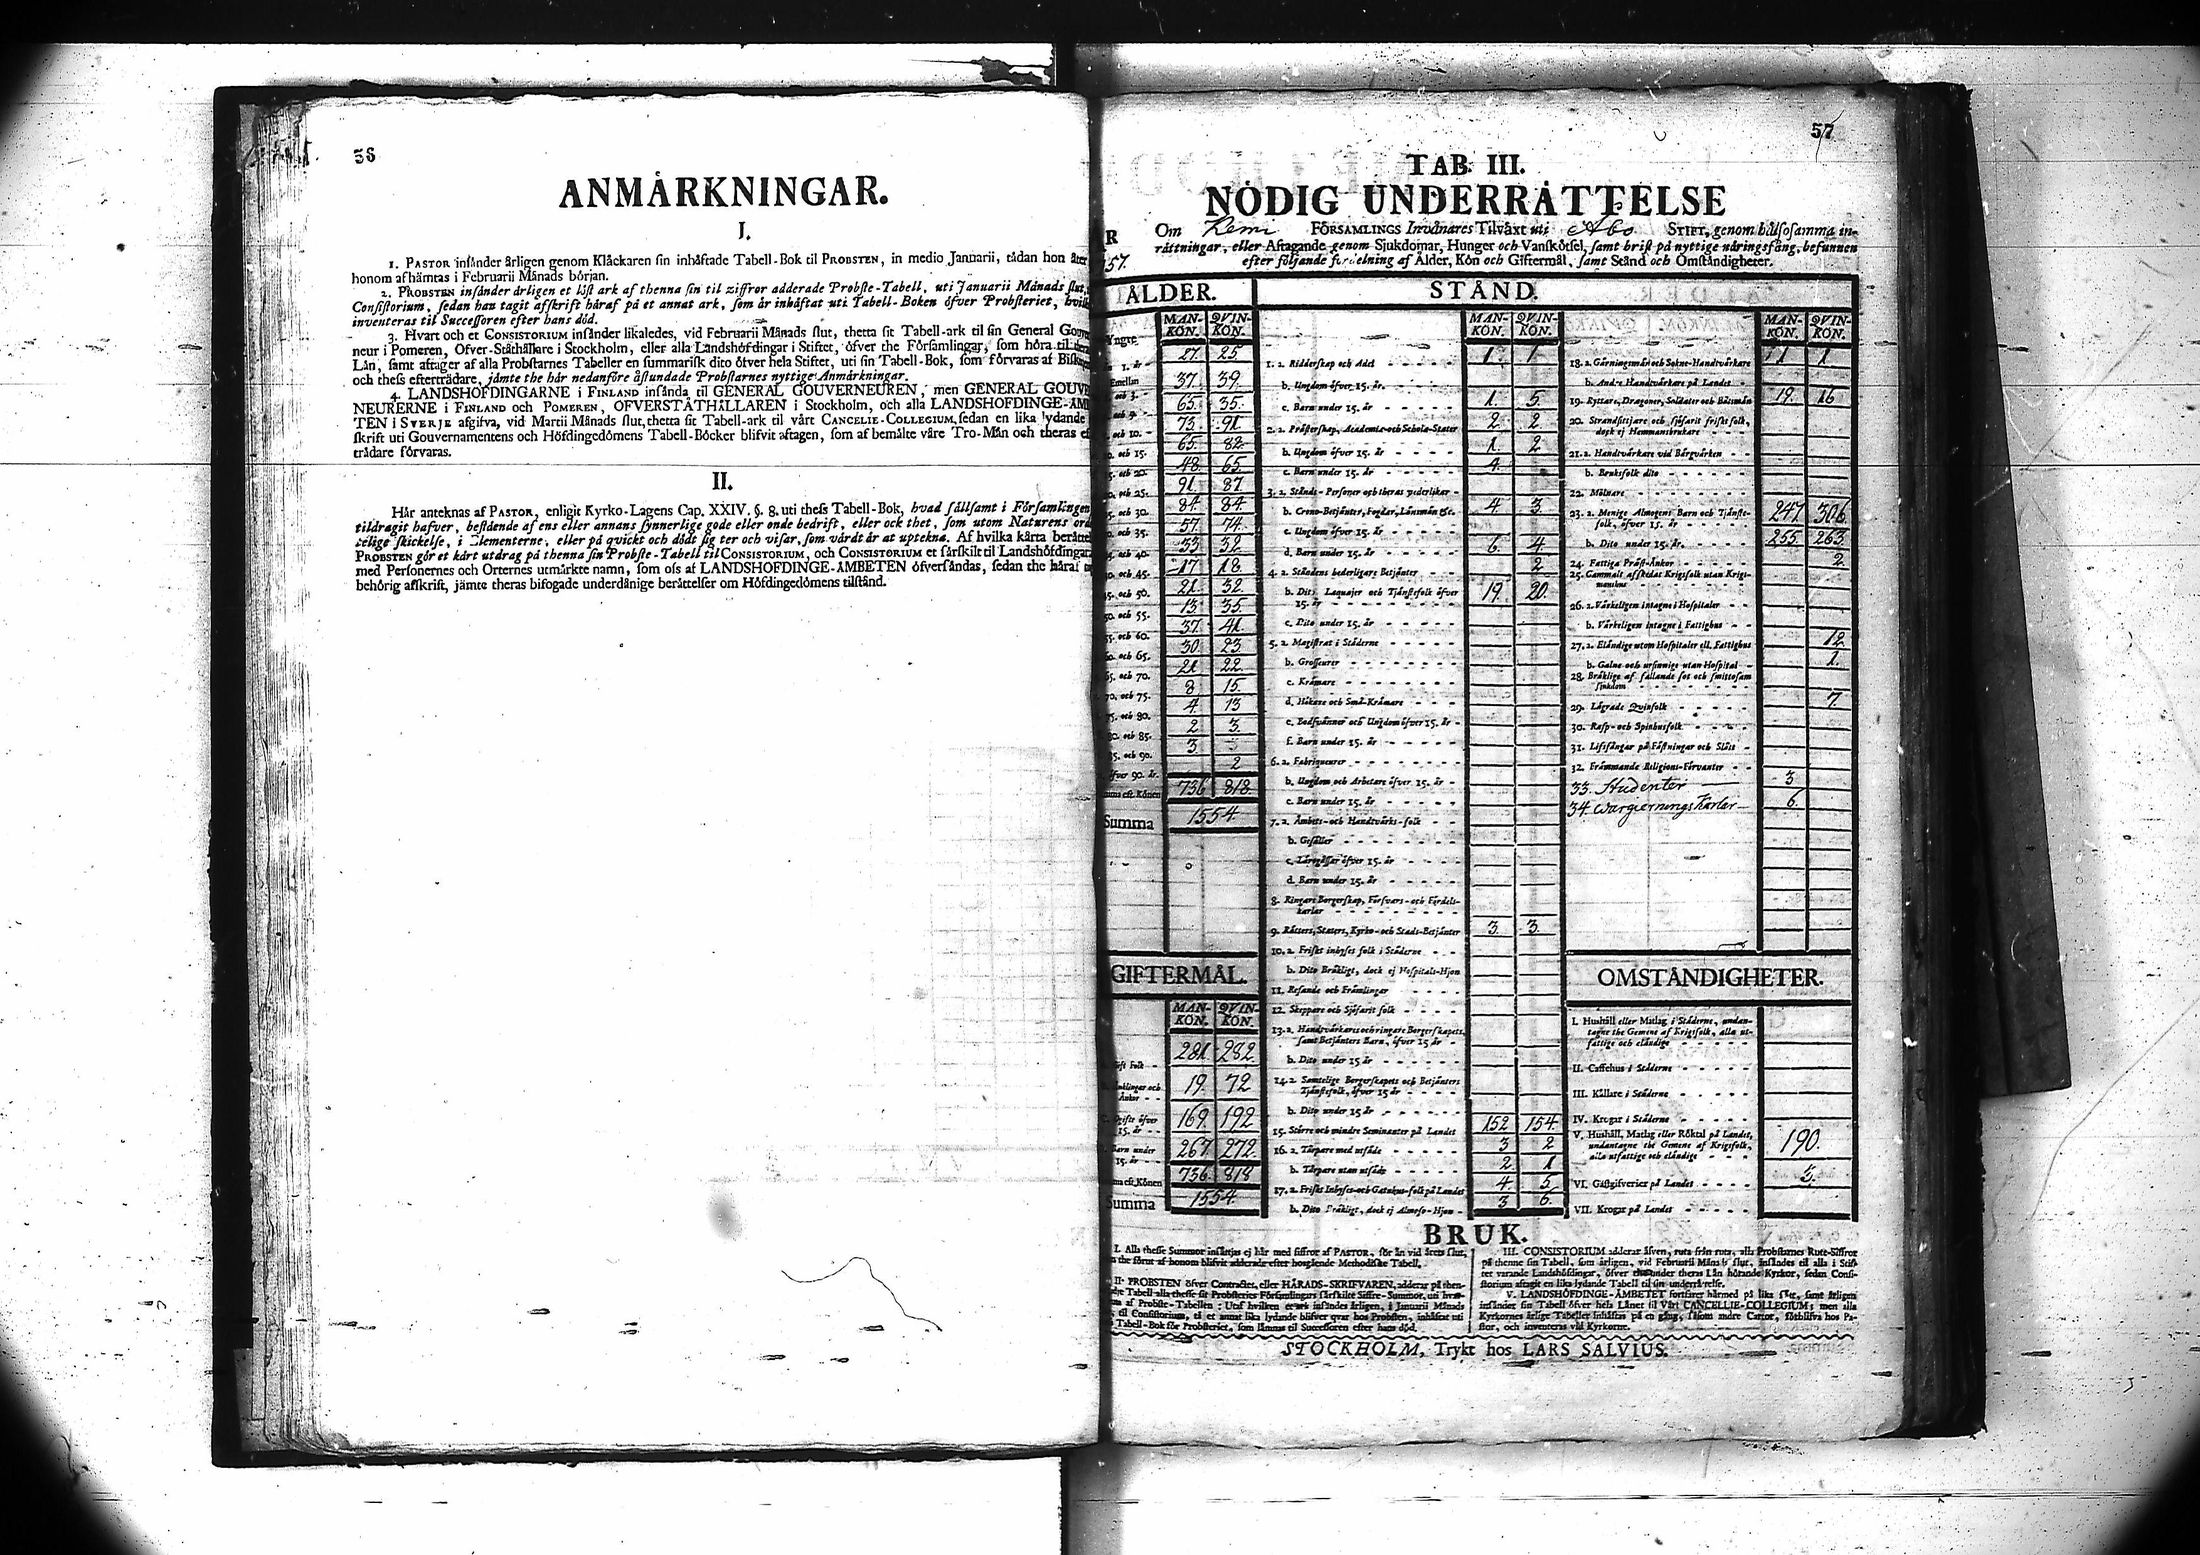 36
ANMÄRKNINGAR.
I.
1. PASTOR insänder årligen genom Klåckaren sin inhäftade Tabell-Bok til PROBSTEN, in medio Januarii, tädan hon åter
honom afhämtas i Februarii Månads början.
2. PROBSTEN insänder årligen et löst ark af thenna sin til ziffror adderade Probste-Tabell, uti Januarii Månads slut,
Consistorium, sedan han tagit afskrift häraf på et annat ark, som är inhäftat uti Tabell-Boken öfver Probsteriet, hvilk
inventeras til Successoren efter hans död.
3. Hvart och et CONSISTORIUM insänder likaledes, vid Februarii Månads slut, thetta sit Tabell-ark til sin General Gouver
neur i Pomeren, Öfver-Ståthållare i Stockholm, eller alla Landshöfdingar i Stiftet, öfver the Församlingar, som höra til
Län, samt aftager af alla Probstarnes Tabeller en summarisk dito öfver hela Stiftet, uti sin Tabell-Bok, som förvaras af
och thess efterträdare, jämte the här nedanföre åstundade Probstarnes nyttige Anmärkningar.
4. LANDSHÖFDINGARNE i FINLAND insända til GENERAL GOUVERNEUREN, men GENERAL GOUVE
NEURERNE i FINLAND och POMEREN, ÖFVERSTÅTHÅLLAREN i Stockholm, och alla LANDSHÖFDINGE-ÄMB
TEN i SVERJE afgifva, vid Martii Månads slut, thetta sit Tabell-ark til vårt CANCELIE-COLLEGIUM, sedan en lika lydande
skrift uti Gouvernamentens och Höfdingedömens Tabell-Böcker blifvit aftagen, som af bemälte våre Tro-Män och theras ef
trädare förvaras.
II.
Här anteknas af PASTOR, enligit Kyrko-Lagens Cap. XXIV. §. 8. uti thess Tabell-Bok, hvad sällsamt i Församlingen
tildragit hafver, bestående af ens eller annans synnerlige gode eller onde bedrift, eller ock thet, som utom Naturens ord
telige skickelse, i Elementerne, eller på qvickt och dödt sig ter och visar, som värdt är at uptekna. Af hvilka kårta berättel
PROBSTEN gör et kårt utdrag på thenna sin Probste-Tabell til CONSISTORIUM, och CONSISTORIUM et särskilt til Landshöfdingar
med Personernes och Orternes utmärkte namn, som oss af LANDSHÖFDINGE-ÄMBETEN öfversändas, sedan the häraf
behörig afskrift, jämte theras bifogade underdånige berättelser om Höfdingedömens tilstånd.
57
TAB. III.
NÖDIG UNDERRÄTTELSE
Om Kemi FÖRSAMLINGS Invånares Tilväxt uti Åbo STIFT, genom hälsosamma in-
rättningar, eller Aftagande genom Sjukdomar, Hunger och Vanskötsel, samt brist på nyttige näringsfång, befunnen
efter följande fördelning af Ålder, Kön och Giftermål, samt Stånd och Omständigheter.
57.
ÅLDER.
MAN-KÖN. QVIN-KÖN.
Yngre
1. år - 27. 25.
Emellan
och 3. 37. 39.
65. 35.
och 10. - 73. 91.
och 15. 65. 82.
och 20. 48. 65.
och 25. 91. 87.
och 30. 84. 84.
och 35. 57. 74.
och 40. 33. 32.
och 45. 17. 18.
och 50. 21. 32.
50. och 55. 13. 35.
och 60. 37. 41.
och 65. 30. 23.
65. och 70. 21. 22.
70. och 75. 8. 15.
och 80. 4. 13
80. och 85. 2. 3.
och 90. 3.
öfver 90. år. 2
Summa eft. Könen 736 818.
Summa 1554.
GIFTERMÅL.
MAN-KÖN. QVIN-KÖN.
Gift Folk - 281. 282.
Änklingar och Änkor - - 19. 72
Ogifte öfver 15. år - - 169. 192
Barn under 15. år - - 267. 272.
eft. Könen 736. 818
Summa 1554.
STÅND.
MAN-KÖN. QVIN-KÖN.
1. a. Ridderskap och Adel 1. 1
b. Ungdom öfver 15. år.
c. Barn under 15. år 1. 5.
2. a. Prästerskap, Academie- och Schole-Stater 2. 2.
b. Ungdom öfver 15. år 1. 2
c. Barn under 15. år 4.
3. a. Stånds-Personer och theras vederlikar -
b. Crono-Betjänter, Fogdar, Länsmän &c. 4 3.
c. Ungdom öfver 15. år
d. Barn under 15. år 6. 4
4. a. Ståndens hederligare Betjänter 2
b. Dito, Laquajer och Tjänstefolk öfver 15. år 19. 20.
c. Dito under 15. år
5. a. Magistrat i Städerne
b. Grosseurer
c. Krämare
d. Hökare och Små-Krämare
e. Bodsvänner och Ungdom öfver 15. år
f. Barn under 15. år
6. a. Fabriqueurer
b. Ungdom och Arbetare öfver 15. år
c. Barn under 15. år
7. a. Ämbets- och Handtvärks-folk
b. Gesäller
c. Lärogåssar öfver 15. år
d. Barn under 15. år
8. Ringare Borgerskap, Försvars- och Fördels-karlar
9. Rätters, Staters, Kyrko- och Stads-Betjänter 3. 3.
10. a. Friskt inhyses folk i Städerne
b. Dito Bräkligt, dock ej Hospitals-Hjon
11. Resande och Främlingar
12. Skeppare och Sjöfarit folk
13. a. Handtvärkares och ringare Borgerskapets, samt Betjänters Barn, öfver 15 år
b. Dito under 15 år
14. a. Samtelige Borgerskapets och Betjänters Tjänstefolk, öfver 15 år
b. Dito under 15 år
15. Större och mindre Hemmanter på Landet 152 154
16. a. Torpare med utsäde 3 2
b. Torpare utan utsäde 2. 1
17. a. Friskt Inhyses- och Gatuhus-folk på Landet 4. 5.
b. Dito Bräkligt, dock ej Almoso-Hjon 3 6.
MAN-KÖN. QVIN-KÖN.
18. a. Gärningsmän och Sokne-Handtvärkare 1 1
b. Andre Handtvärkare på Landet
19. Ryttare, Dragoner, Soldater och Båtsmän 19. 16
20. Strandsittjare och sjöfarit friskt folk, dock ej Hemmansbrukare
21. a. Handtvärkare vid Bärgvärken
b. Bruksfolk dito
22. Mölnare
23. a. Menige Almogens Barn och Tjänste-folk, öfver 15. år 247. 306.
b. Dito under 15. år. 255. 263.
24. Fattiga Präst-Änkor 2.
25. Gammalt afskedat Krigsfolk utan Krigs-manshus
26. a. Värkeligen intagne i Hospitaler
b. Värkeligen intagne i Fattighus
27. a. Eländige utom Hospitaler ell. Fattighus 12
b. Galne och ursinnige utan Hospital 1.
28. Bräklige af fallande sot och smittosam sjukdom
29. Lägrade Qvinfolk 7.
30. Rasp- och Spinhusfolk
31. Lifsfångar på Fästningar och Slått
32. Främmande Religions-Förvanter
33. Studenter 3
34. Wargiernings Karlar 6.
OMSTÄNDIGHETER.
I. Hushåll eller Matlag i Städerne, undan-
tagne the Gemene af Krigsfolk, alla ut-
fattige och eländige
II. Caffehus i Städerne
III. Källare i Städerne
IV. Krogar i Städerne
V. Hushåll, Matlag eller Röktal på Landet,
undantagne the Gemene af Krigsfolk,
alla utfattige och eländige 190.
VI. Gästgifverier på Landet 3.
VII. Krogar på Landet
BRUK.
I. Alla thesse Summor insättjas ej här med siffror af PASTOR, för än vid årets slut,
the förut af honom blifvit adderade efter hosgående Methodiske Tabell.
II. PROBSTEN öfver Contractet, eller HÄRADS-SKRIFVAREN, adderar på then-
Tabell alla thesse sit Probsteries Församlingars särskilte Siffre-Summor, uti
af Probste-Tabellen: Utaf hvilken et ark insändes årligen, i Januarii Månads
til Consistorium, et annat lika lydande blifver qvar hos Probsten, inhäftat uti
Tabell-Bok för Probsteriet, som lämnas til Successoren efter hans död.
III. CONSISTORIUM adderar äfven, ruta från ruta, alla Probstarnes Rute-Siffror
på thenne sin Tabell, som årligen, vid Februarii Månads slut, insändes til alla i Stif-
tet varande Landshöfdingar, öfver the under theras Län hörande Kyrkor, sedan Consi-
storium aftagit en lika lydande Tabell til sin underrättelse.
V. LANDSHÖFDINGE-ÄMBETET fortfarer härmed på lika sätt, samt årligen
insänder sin Tabell öfver hela Länet til Vårt CANCELLIE-COLLEGIUM; men alla
Kyrkornes årlige Tabeller inhäftas på en gång, såsom andre Cartor, förblifva hos Pa-
stor, och inventeras vid Kyrkorne.
STOCKHOLM, Trykt hos LARS SALVIUS.